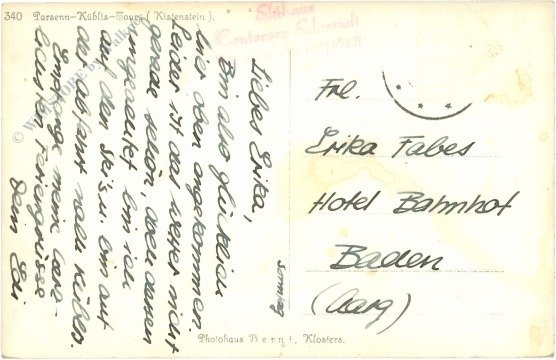 340 Parsenn-Küblis-Tour: (Kistenstein).
Skihaus
Conterser Schwendi
Sonntag
Liebes Erika,
Bin also glücklich
hier oben angekommen.
Leider ist das Wetter nicht
gerade schön, doch dessen
ungeachtet bin ich
auf den Skis u. bin auf
der Abfahrt nach Küblis.
Empfange meine herz-
lichsten Feriengrüsse
Dein Edi
Frl.
Erika Fabes
Hotel Bahnhof
Baden
(Aarg)
Photohaus Berni, Klosters.